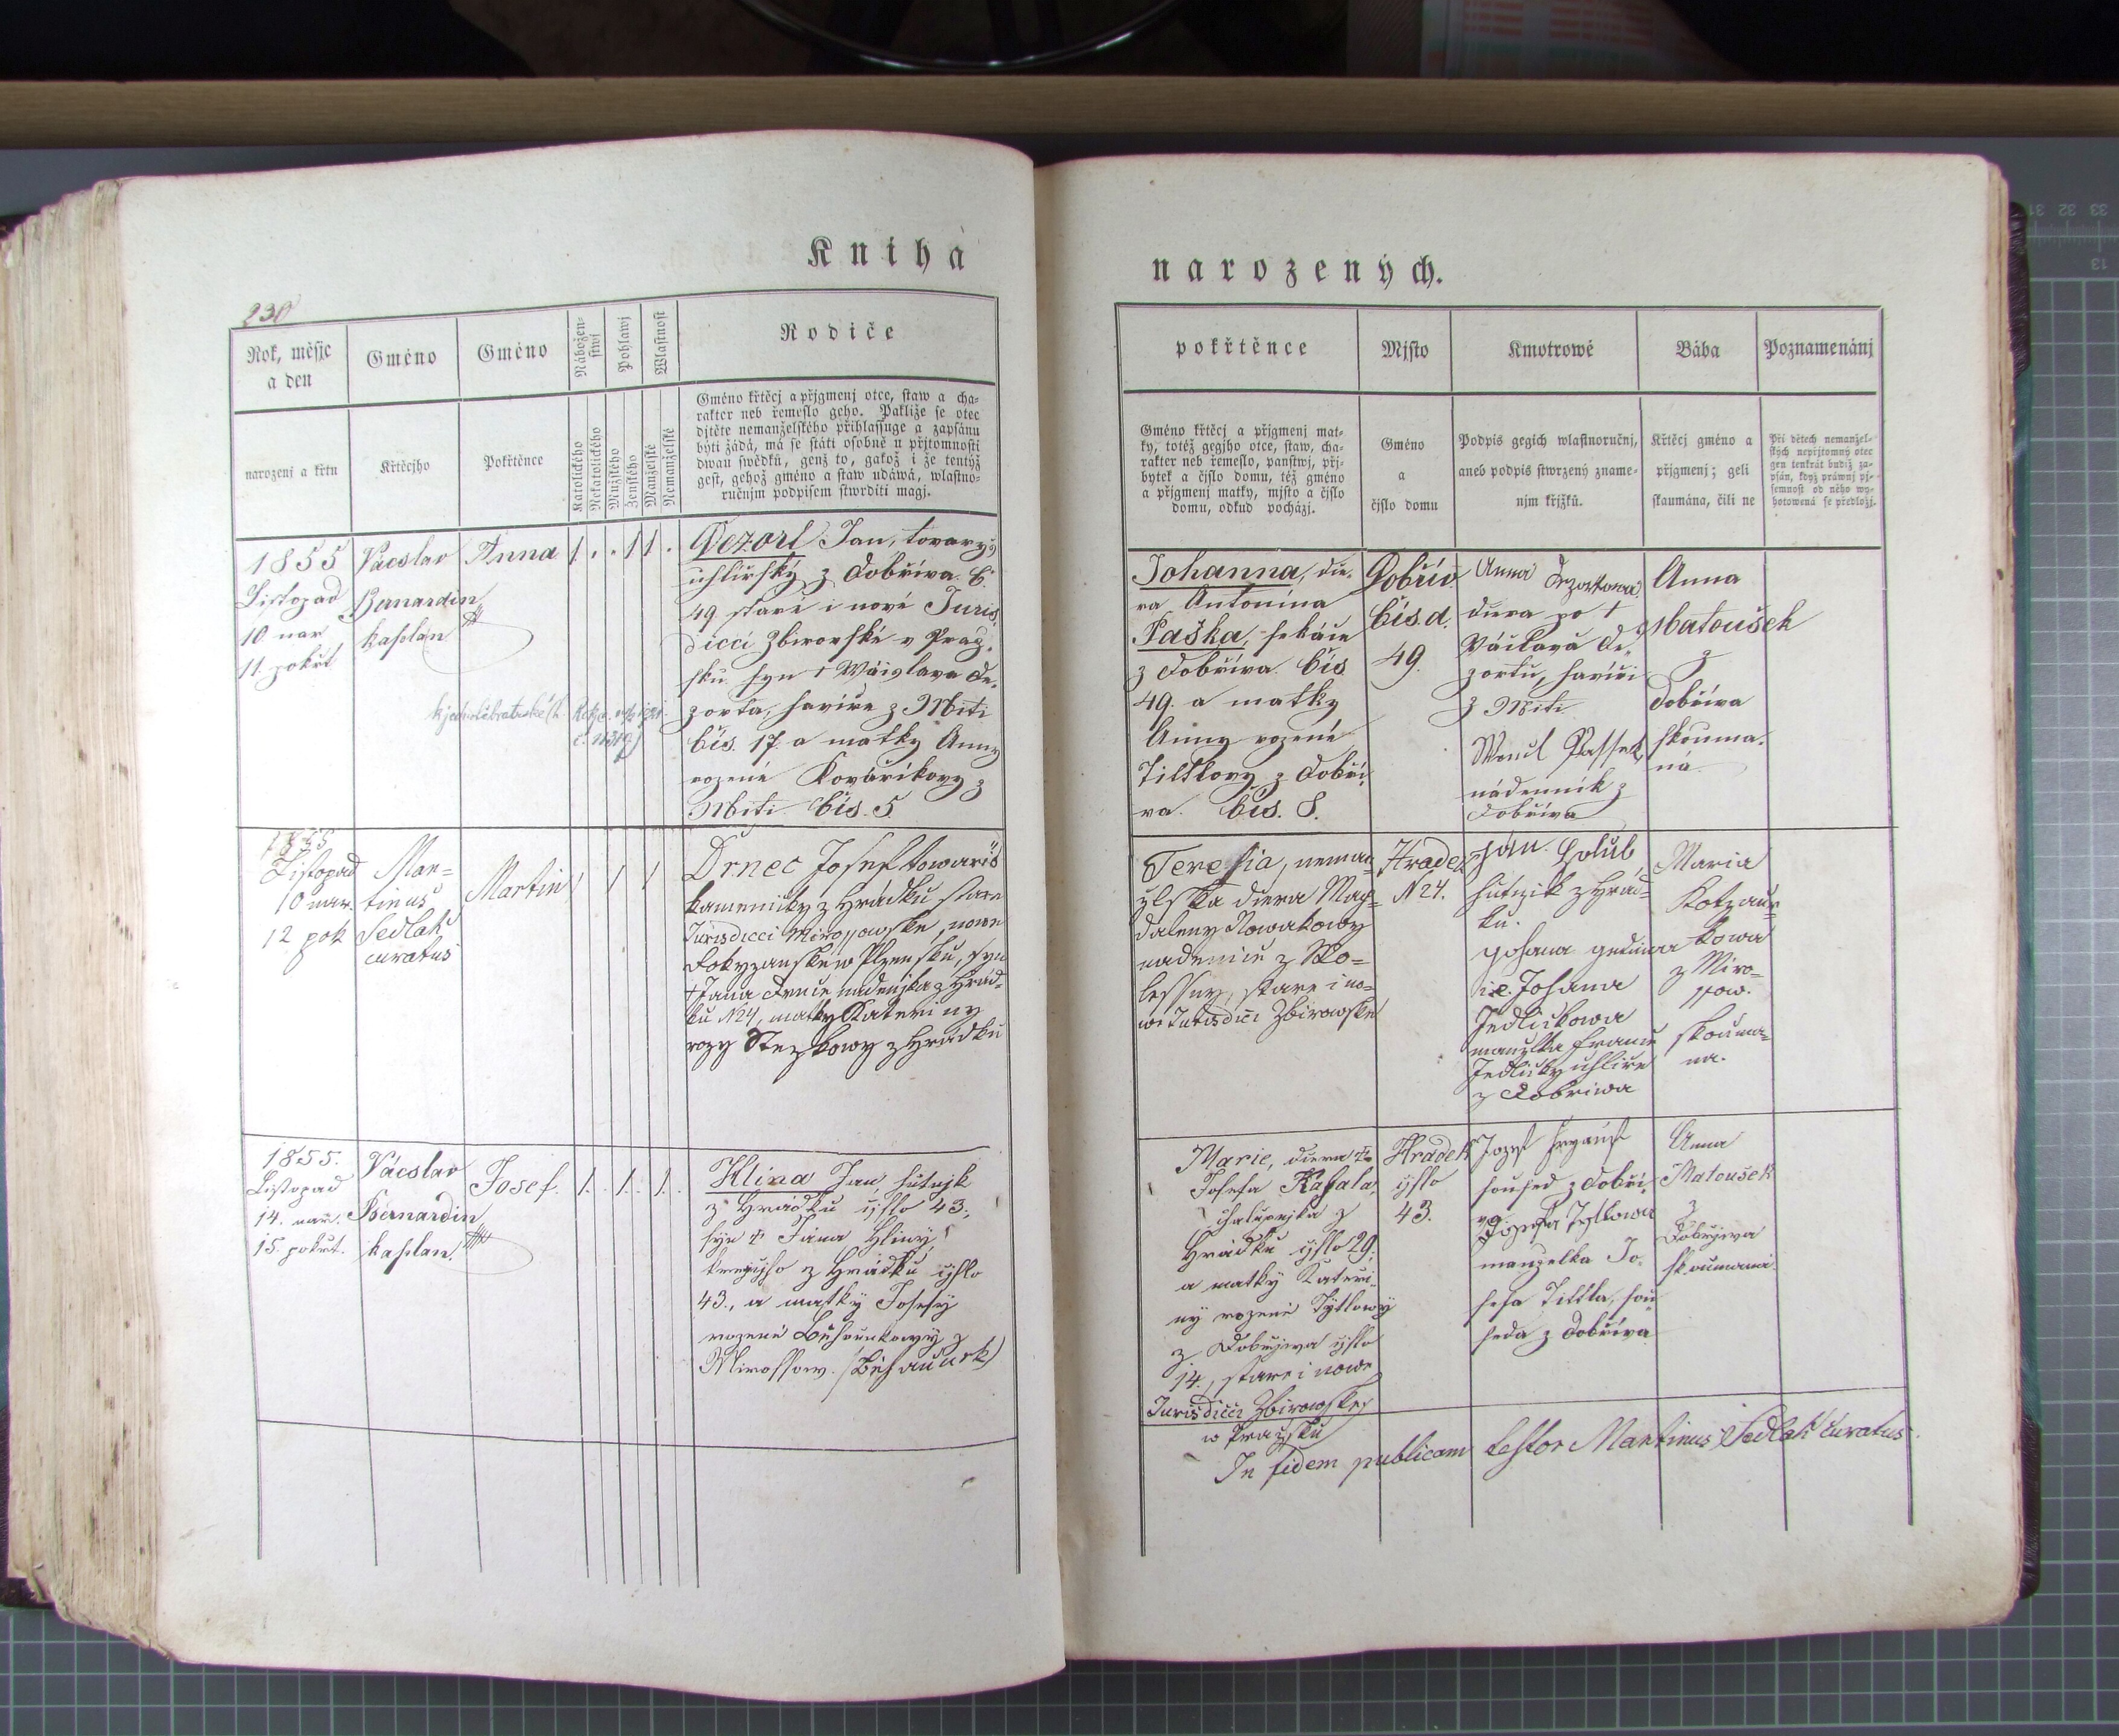 Kniha
narozených.
230
Rok, měsíc
a den
Gméno
Gméno
Nábožen-
stwí
Pohlawj
Wlastnost
Rodiče
narození a křtu
Křtěcjho
Pokřtěnce
Katolického
Nekatolického
Mužského
Ženského
Manželské
Nemanželské
Gméno křtěcj a přjgmenj otce, staw a cha-
rakter neb řemeslo geho. Pakliže se otec
djtěte nemanželského přihlassuge a zapsánu
býti žádá, má se státi osobně u přjtomnosti
dwau swědků, genž to, gakož i že tentýž
gest, gehož gméno a staw udáwá, wlastno-
ručnjm podpisem stwrditi magj.
1855
Listopad
10 nar
11. pokřt
Vácslav
Bernardin
kaplan
Anna
1 . . 1 1 .
Dezort Jan, tovaryš
uhlířský z Dobříva č.
49 staré i nové Juris
dicci Zbirovské v Praž
sku syn † Wácslava De,
zorta, havíře z Mití
čís. 17. a matky Anny
rozené Kováříkovy z
Mití čís. 5.
1855
Listopad
10 nar.
12 pok
Mar=
tinus
Sedlak
curatus
Martin
1 1 1
Drnec Josef towariš
kamenicky z Hrádku stare
Jurisdicci Mirossowske, nowe
Rokyzanske w Plzensku, syn
† Jana Drnce nadenjka z Hrád=
ku N 24, matky Kateriny
rozy Stezkowy z Hrádku
1855.
Listopad
14. nar.
15. pokřt.
Vácslav
Bernardin
kaplan.
Josef.
1. 1. 1.
Hlina Jan, hutnjk
z Hrádku čjslo 43.,
syn † Jana Hliny,
z Hrádku čjslo
43., a matky Josefy
rozené z
Mirossow.
pokřtěnce
Mjsto
Kmotrowé
Bába
Poznamenánj
Gméno křtěcj a přjgmenj mat-
ky, totéž gegjho otce, staw, cha-
rakter neb řemeslo, panstwj, přj-
bytek a čjslo domu, též gméno
a přjgmenj matky, mjsto a čjslo
domu, odkud pocházj.
Gméno
a
čjslo domu
Podpis gegich wlastnoručnj,
aneb podpis stwrzený zname-
njm křjžků.
Křtěcj gméno a
přjgmenj; geli
skaumána, čili ne
Při dětech nemanžel-
ských nepřjtomný otec
gen tenkrát budiž za-
psán, když práwnj pj-
semnost od něho wy-
hotowená se předložj.
Johanna, dce,
ra Antonína
Paška, sekáče
z Dobříva čís
49. a matky
Anny rozené
Tittlovy z Dobří
va. čís. 8.
Dobřív
čís. d.
49.
Anna Dezortowa
dcera po †
Václavu De,
zortu, havíři
z Mití
Passek
nádenník z
Dobříva
Anna
Matoušek
z
Dobříva
skouma,
ná.
Teresia, neman
zlska dcera Mag=
daleny Nowakowy
nadenice z Sko=
lessny, stare i no=
we Jurisdicci Zbirowske
Hradek
N 24.
Jan Holub
z Hrád=
ku.
i.e. Johana
Jedlickowa
manzlka Frant
Jedlicky uhlire
z Dobriwa
Maria
kowa
z Miro=
ssow.
skouma=
na.
Marie, dcera †
Josefa Kabala,
chalupnjka z
Hrádku čjslo 29.
a matky Kateři,
ny rozené Tytlowy
z Dobrjwa čjslo
14., stare i nowe
Jurisdicci Zbirowskej
w Prazsku
Hradek
čjslo
43.
Jozef
soused z Dobří,
va.
manzelka Jo,
sefa Tittla, sou
seda z Dobříva
Anna
Matoušek
z
Dobrjwa
skoumaná.
In fidem publicam testor Martinus Sedlak curatus.